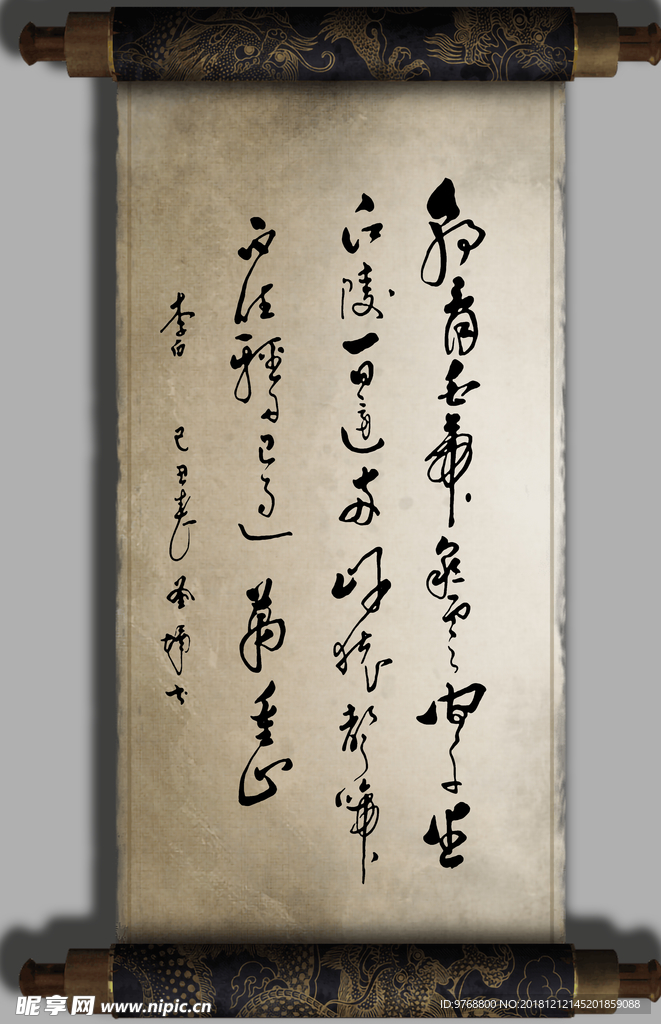 朝辞白帝彩云间千里
江陵一日還两岸猿聲啼
不住輕舟已過萬重山
李白 己丑春 书
昵享网 www.nipic.cn
ID:9768800 NO:20181212145201859088